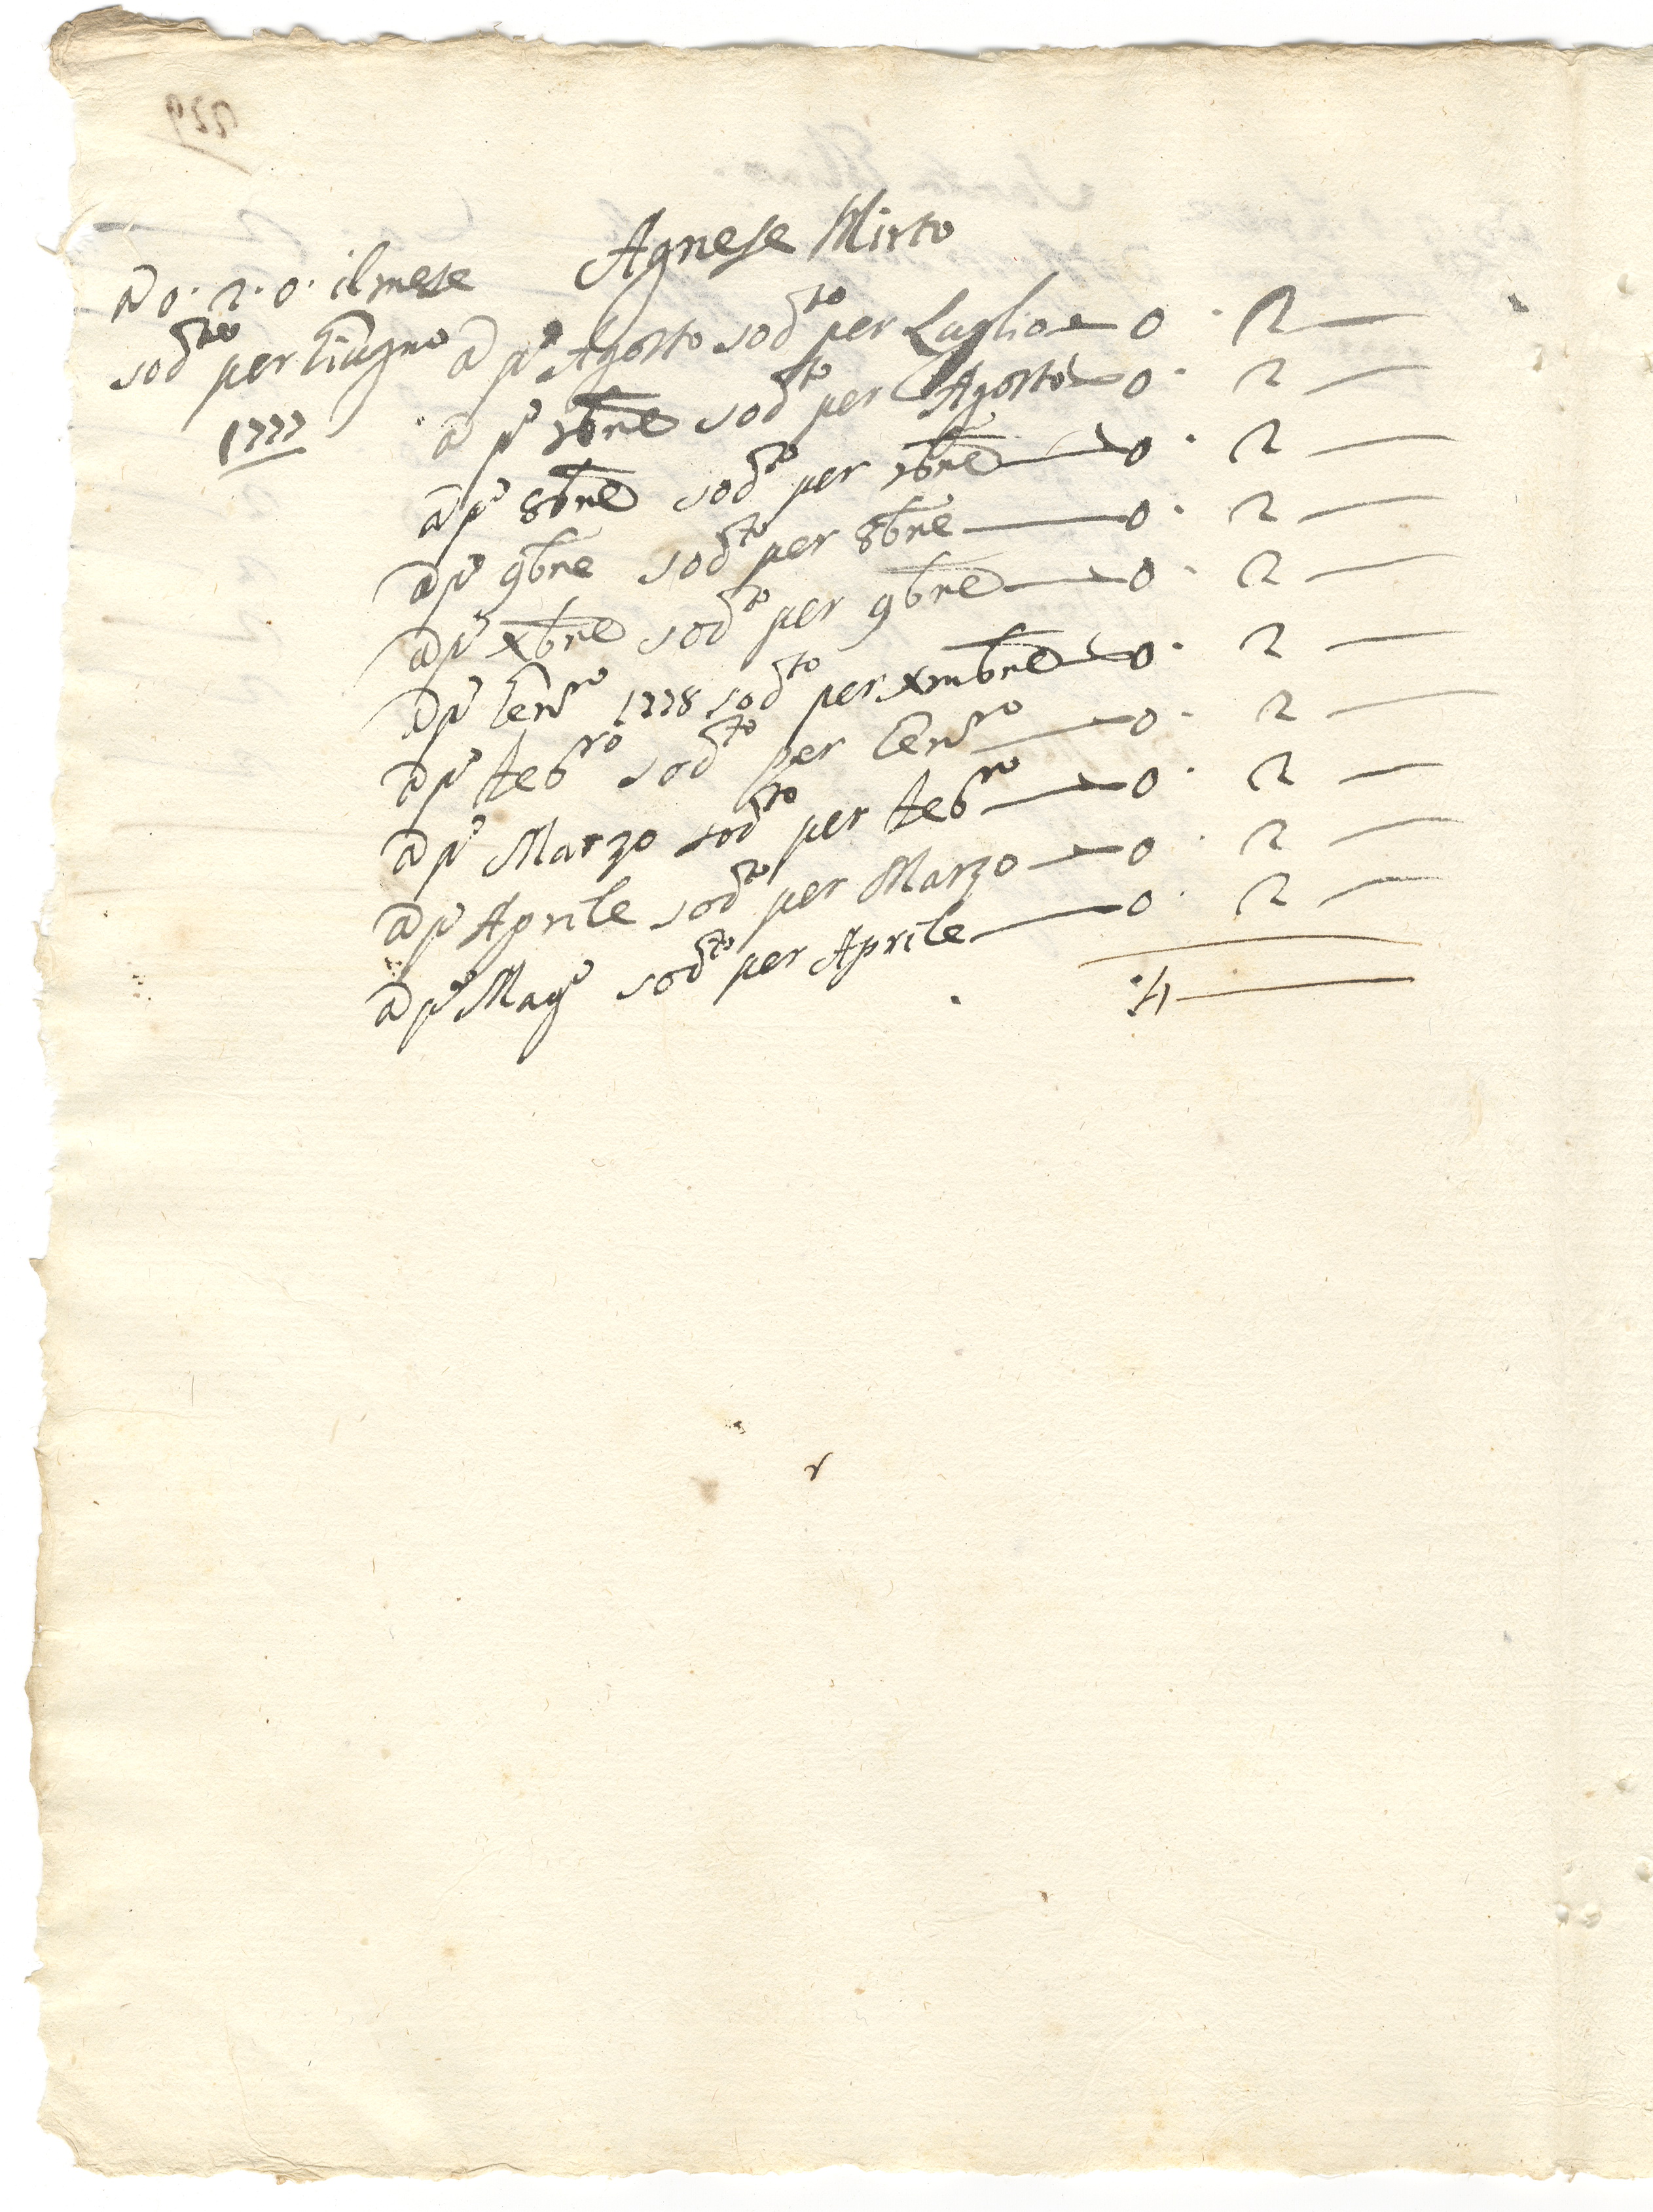 Agnese Mirto
a 0. 2. 0. il mese
sod.to per Giugno
1777
a p.o Agosto sod.to per Luglio 0. 2
a p.o 7bre sod.to per Agosto 0. 2
a p.o 8bre sod.to per 7bre 0. 2
a p.o 9bre sod.to per 8bre 0. 2
a p.o Xbre sod.to per 9bre 0. 2
a p.o Gen.ro 1778 sod.to per Xmbre 0. 2
a p.o Feb.ro sod.to per Gen.ro 0. 2
a p.o Marzo sod.to per Feb.ro 0. 2
a p.o Aprile sod.to per Marzo 0. 2
a p.o Mag.o sod.to per Aprile 0. 2